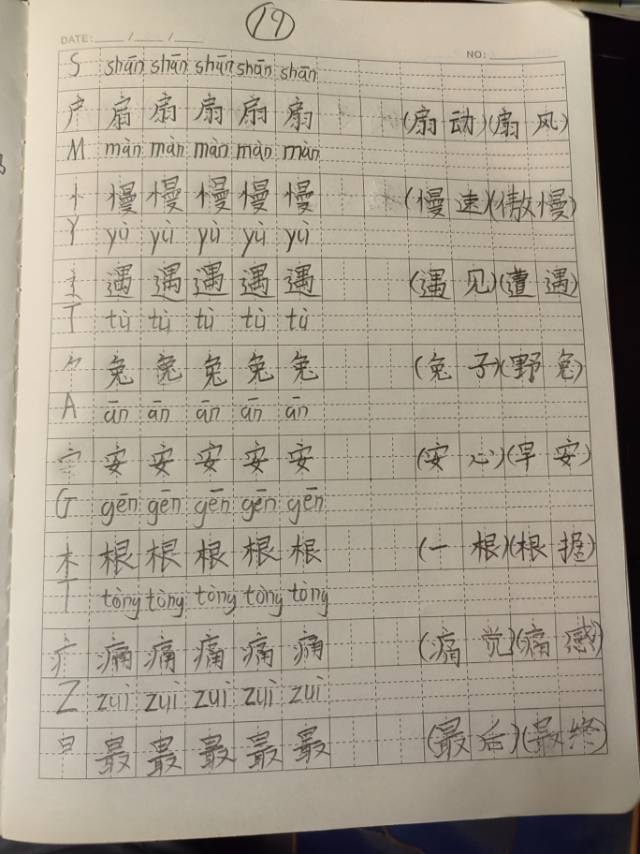 19
DATE: / /
NO:
S shān shān shān shān shān
户 扇 扇 扇 扇 扇 (扇动)(扇风)
M màn màn màn màn màn
忄 慢 慢 慢 慢 慢 (慢速)(傲慢)
Y yù yù yù yù yù
辶 遇 遇 遇 遇 遇 (遇见)(遭遇)
T tù tù tù tù tù
⺈ 兔 兔 兔 兔 兔 (兔子)(野兔)
A ān ān ān ān ān
宀 安 安 安 安 安 (安心)(早安)
G gēn gēn gēn gēn gēn
木 根 根 根 根 根 (一根)(根握)
T tòng tòng tòng tòng tòng
疒 痛 痛 痛 痛 痛 (痛觉)(痛感)
Z zuì zuì zuì zuì zuì
日 最 最 最 最 最 (最后)(最终)